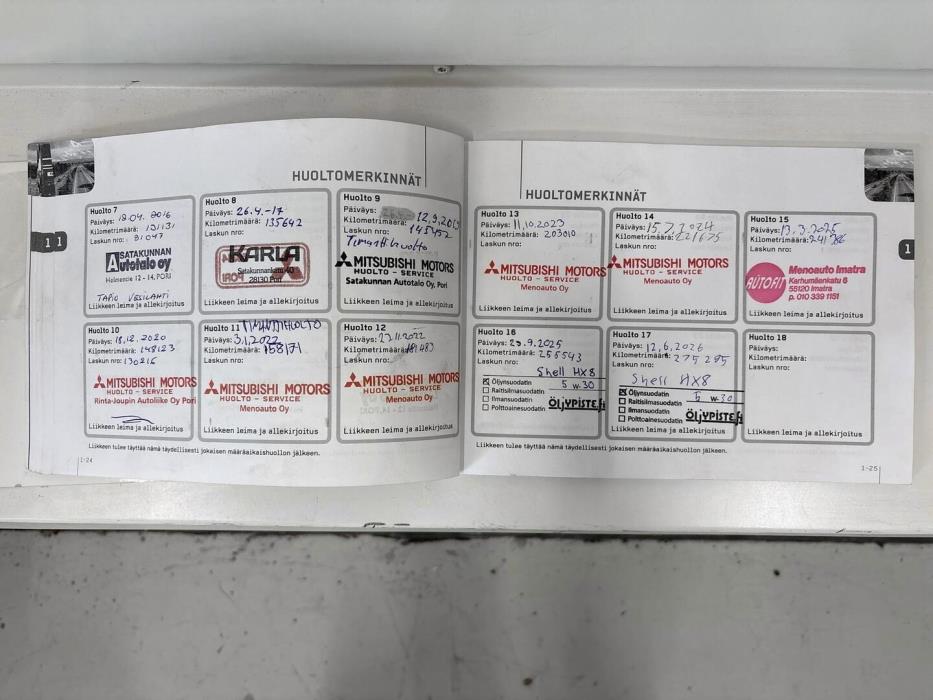 HUOLTOMERKINNÄT
Huolto 7
Päiväys: 18.04.2016
Kilometrimäärä: 121131
Laskun nro: 31047
SATAKUNNAN
Autotalo oy
Helmentie 12 - 14, PORI
TAPIO VESILAHTI
Liikkeen leima ja allekirjoitus
Huolto 8
Päiväys: 26.4.-17
Kilometrimäärä: 135642
Laskun nro:
KARLA
Satakunnankatu 40
28130 Pori
Liikkeen leima ja allekirjoitus
Huolto 9
Päiväys: 12,9,2019
Kilometrimäärä: 145452
Laskun nro:
Timanttihuolto
MITSUBISHI MOTORS
HUOLTO - SERVICE
Satakunnan Autotalo Oy, Pori
Liikkeen leima ja allekirjoitus
Huolto 10
Päiväys: 18.12.2020
Kilometrimäärä: 148123
Laskun nro: 130216
MITSUBISHI MOTORS
HUOLTO - SERVICE
Rinta-Joupin Autoliike Oy Pori
Liikkeen leima ja allekirjoitus
Huolto 11 TIMANTTIHUOLTO
Päiväys: 3.1.2022
Kilometrimäärä: 158171
Laskun nro:
MITSUBISHI MOTORS
HUOLTO - SERVICE
Menoauto Oy
Liikkeen leima ja allekirjoitus
Huolto 12
Päiväys: 22.11.2022
Kilometrimäärä: 181483
Laskun nro:
MITSUBISHI MOTORS
HUOLTO - SERVICE
Menoauto Oy
Liikkeen leima ja allekirjoitus
Liikkeen tulee täyttää nämä täydellisesti jokaisen määräaikaishuollon jälkeen.
1-24
11
HUOLTOMERKINNÄT
Huolto 13
Päiväys: 11,10,2023
Kilometrimäärä: 203010
Laskun nro:
MITSUBISHI MOTORS
HUOLTO - SERVICE
Menoauto Oy
Liikkeen leima ja allekirjoitus
Huolto 14
Päiväys: 15.7.2024
Kilometrimäärä: 221675
Laskun nro:
MITSUBISHI MOTORS
HUOLTO - SERVICE
Menoauto Oy
Liikkeen leima ja allekirjoitus
Huolto 15
Päiväys: 13.3.2025
Kilometrimäärä: 241786
Laskun nro:
AUTOFIT
Menoauto Imatra
Karhumäenkatu 6
55120 Imatra
p. 010 339 1151
Liikkeen leima ja allekirjoitus
Huolto 16
Päiväys: 23.9.2025
Kilometrimäärä: 255543
Laskun nro:
Shell HX8
Öljynsuodatin 5 w 30
Raitisilmasuodatin
Ilmansuodatin
Polttoainesuodatin
ÖLJYPISTE.fi
Liikkeen leima ja allekirjoitus
Huolto 17
Päiväys: 12,6,2026
Kilometrimäärä: 275285
Laskun nro:
Shell HX8
Öljynsuodatin 5 w 30
Raitisilmasuodatin
Ilmansuodatin
Polttoainesuodatin
ÖLJYPISTE.fi
Liikkeen leima ja allekirjoitus
Huolto 18
Päiväys:
Kilometrimäärä:
Laskun nro:
Liikkeen leima ja allekirjoitus
Liikkeen tulee täyttää nämä täydellisesti jokaisen määräaikaishuollon jälkeen.
1-25
1